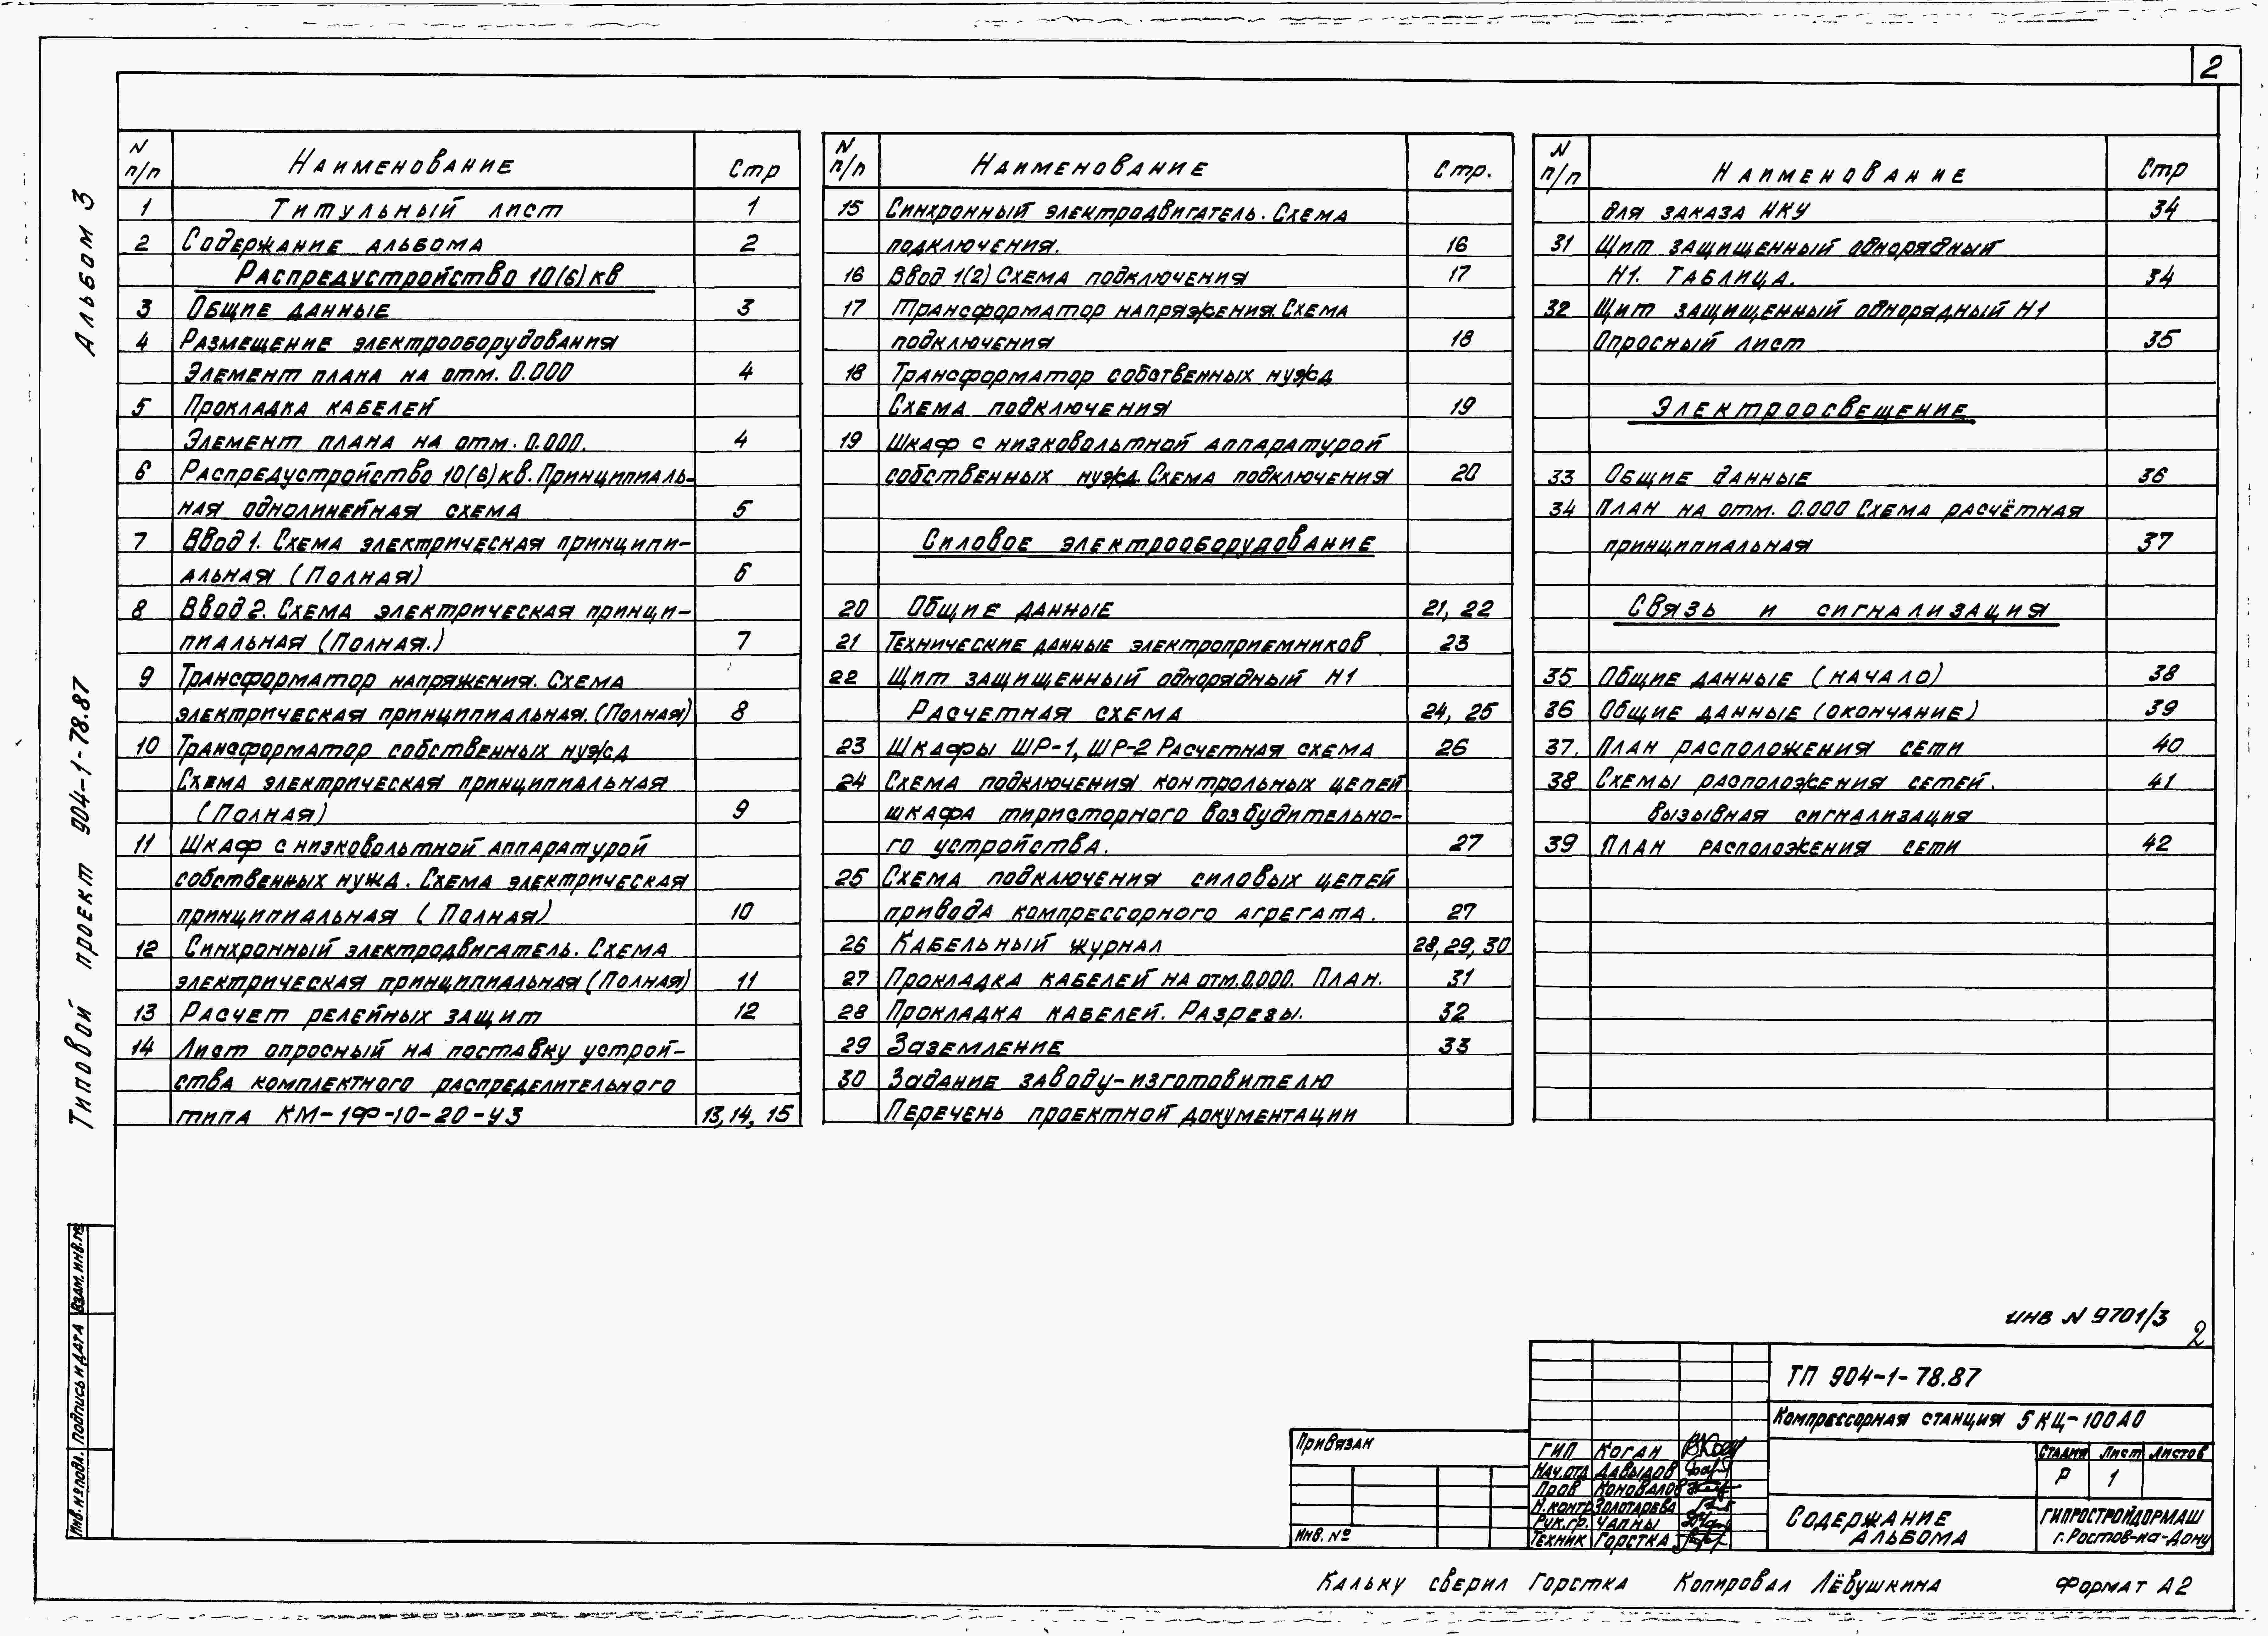 2
Альбом 3
Типовой проект 904-1-78.87
N п/п Наименование Стр
1 Титульный лист 1
2 Содержание альбома 2
Распредустройство 10(6) кв
3 Общие данные 3
4 Размещение электрооборудования
Элемент плана на отм. 0.000 4
5 Прокладка кабелей
Элемент плана на отм. 0.000. 4
6 Распредустройство 10(6) кв. Принципиаль-
ная однолинейная схема 5
7 Ввод 1. Схема электрическая принципи-
альная (Полная) 6
8 Ввод 2. Схема электрическая принци-
пиальная (Полная.) 7
9 Трансформатор напряжения. Схема
электрическая принципиальная. (Полная) 8
10 Трансформатор собственных нужд
Схема электрическая принципиальная
(Полная) 9
11 Шкаф с низковольтной аппаратурой
собственных нужд. Схема электрическая
принципиальная (Полная) 10
12 Синхронный электродвигатель. Схема
электрическая принципиальная (Полная) 11
13 Расчет релейных защит 12
14 Лист опросный на поставку устрой-
ства комплектного распределительного
типа КМ-1Ф-10-20-У3 13, 14, 15
N п/п Наименование Стр.
15 Синхронный электродвигатель. Схема
подключения. 16
16 Ввод 1(2) Схема подключения 17
17 Трансформатор напряжения. Схема
подключения 18
18 Трансформатор собственных нужд
Схема подключения 19
19 Шкаф с низковольтной аппаратурой
собственных нужд. Схема подключения 20
Силовое электрооборудование
20 Общие данные 21, 22
21 Технические данные электроприемников 23
22 Щит защищенный однорядный Н1
Расчетная схема 24, 25
23 Шкафы ШР-1, ШР-2 Расчетная схема 26
24 Схема подключения контрольных цепей
шкафа тиристорного возбудительно-
го устройства. 27
25 Схема подключения силовых цепей
привода компрессорного агрегата. 27
26 Кабельный журнал 28, 29, 30
27 Прокладка кабелей на отм. 0.000. План. 31
28 Прокладка кабелей. Разрезы. 32
29 Заземление 33
30 Задание заводу-изготовителю
Перечень проектной документации
N п/п Наименование Стр
для заказа НКУ 34
31 Щит защищенный однорядный
Н1. Таблица. 34
32 Щит защищенный однорядный Н1
Опросный лист 35
Электроосвещение
33 Общие данные 36
34 План на отм. 0.000 Схема расчётная
принципиальная 37
Связь и сигнализация
35 Общие данные (начало) 38
36 Общие данные (окончание) 39
37. План расположения сети 40
38 Схемы расположения сетей. 41
вызывная сигнализация
39 План расположения сети 42
Взам. инв. №
Подпись и дата
Инв. № подл.
инв N 9701/3
2
ТП 904-1-78.87
Компрессорная станция 5 КЦ-100А0
Стадия Лист Листов
Р 1
Содержание
альбома
ГИПРОСТРОЙДОРМАШ
г. Ростов-на-Дону
Привязан
Инв. №
ГИП Коган
Нач. отд Давыдов
Пров Коновалов
Н. контр. Золотарева
Рук. гр. Чапны
Техник Горстка
Кальку сверил Горстка Копировал Лёвушкина Формат А2